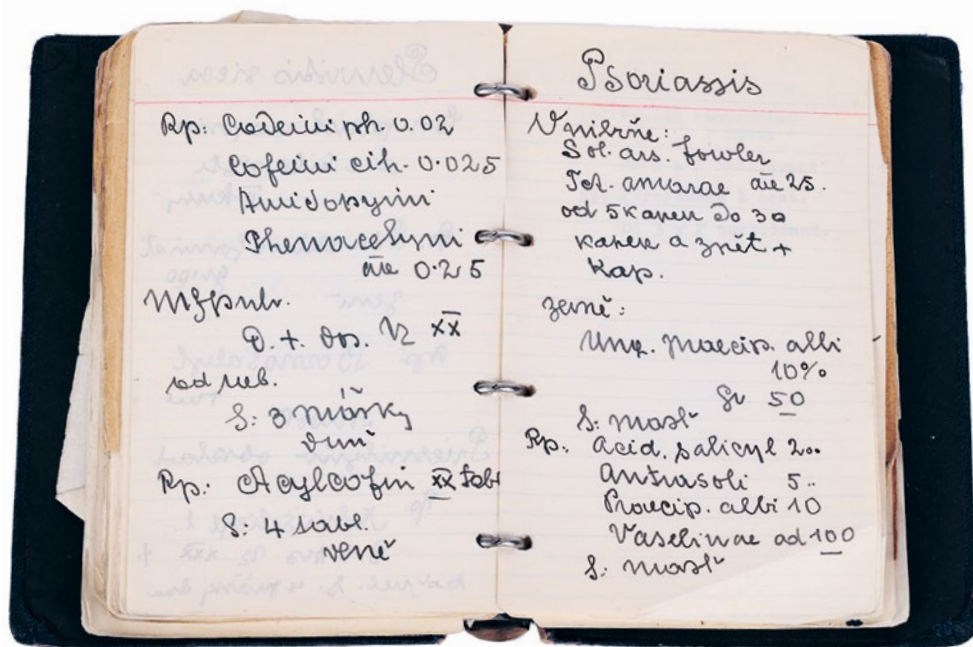 Rp: Codeini ph. 0.02
Cofeini cit. 0.025
Amidopyrini
Phenacetini
āūe 0.25
Mf pulv.
D. t. dos. No XX
od neb.
S: 3 prášky
denně
Rp: Acylcofin XX tabl
S: 4 tabl.
denně
Psoriassis
Vnitřně:
Sol. ars. Fowler
Tct. amarae āūe 25.
od 5 kapek do 30
kapek a zpět +
kap.
zevně:
Ung. praecip. albi
10%
gr 50
S: mast
Rp: Acid. salicyl 2..
Antrasoli 5..
Praecip. albi 10
Vaselinae ad 100
S: mast